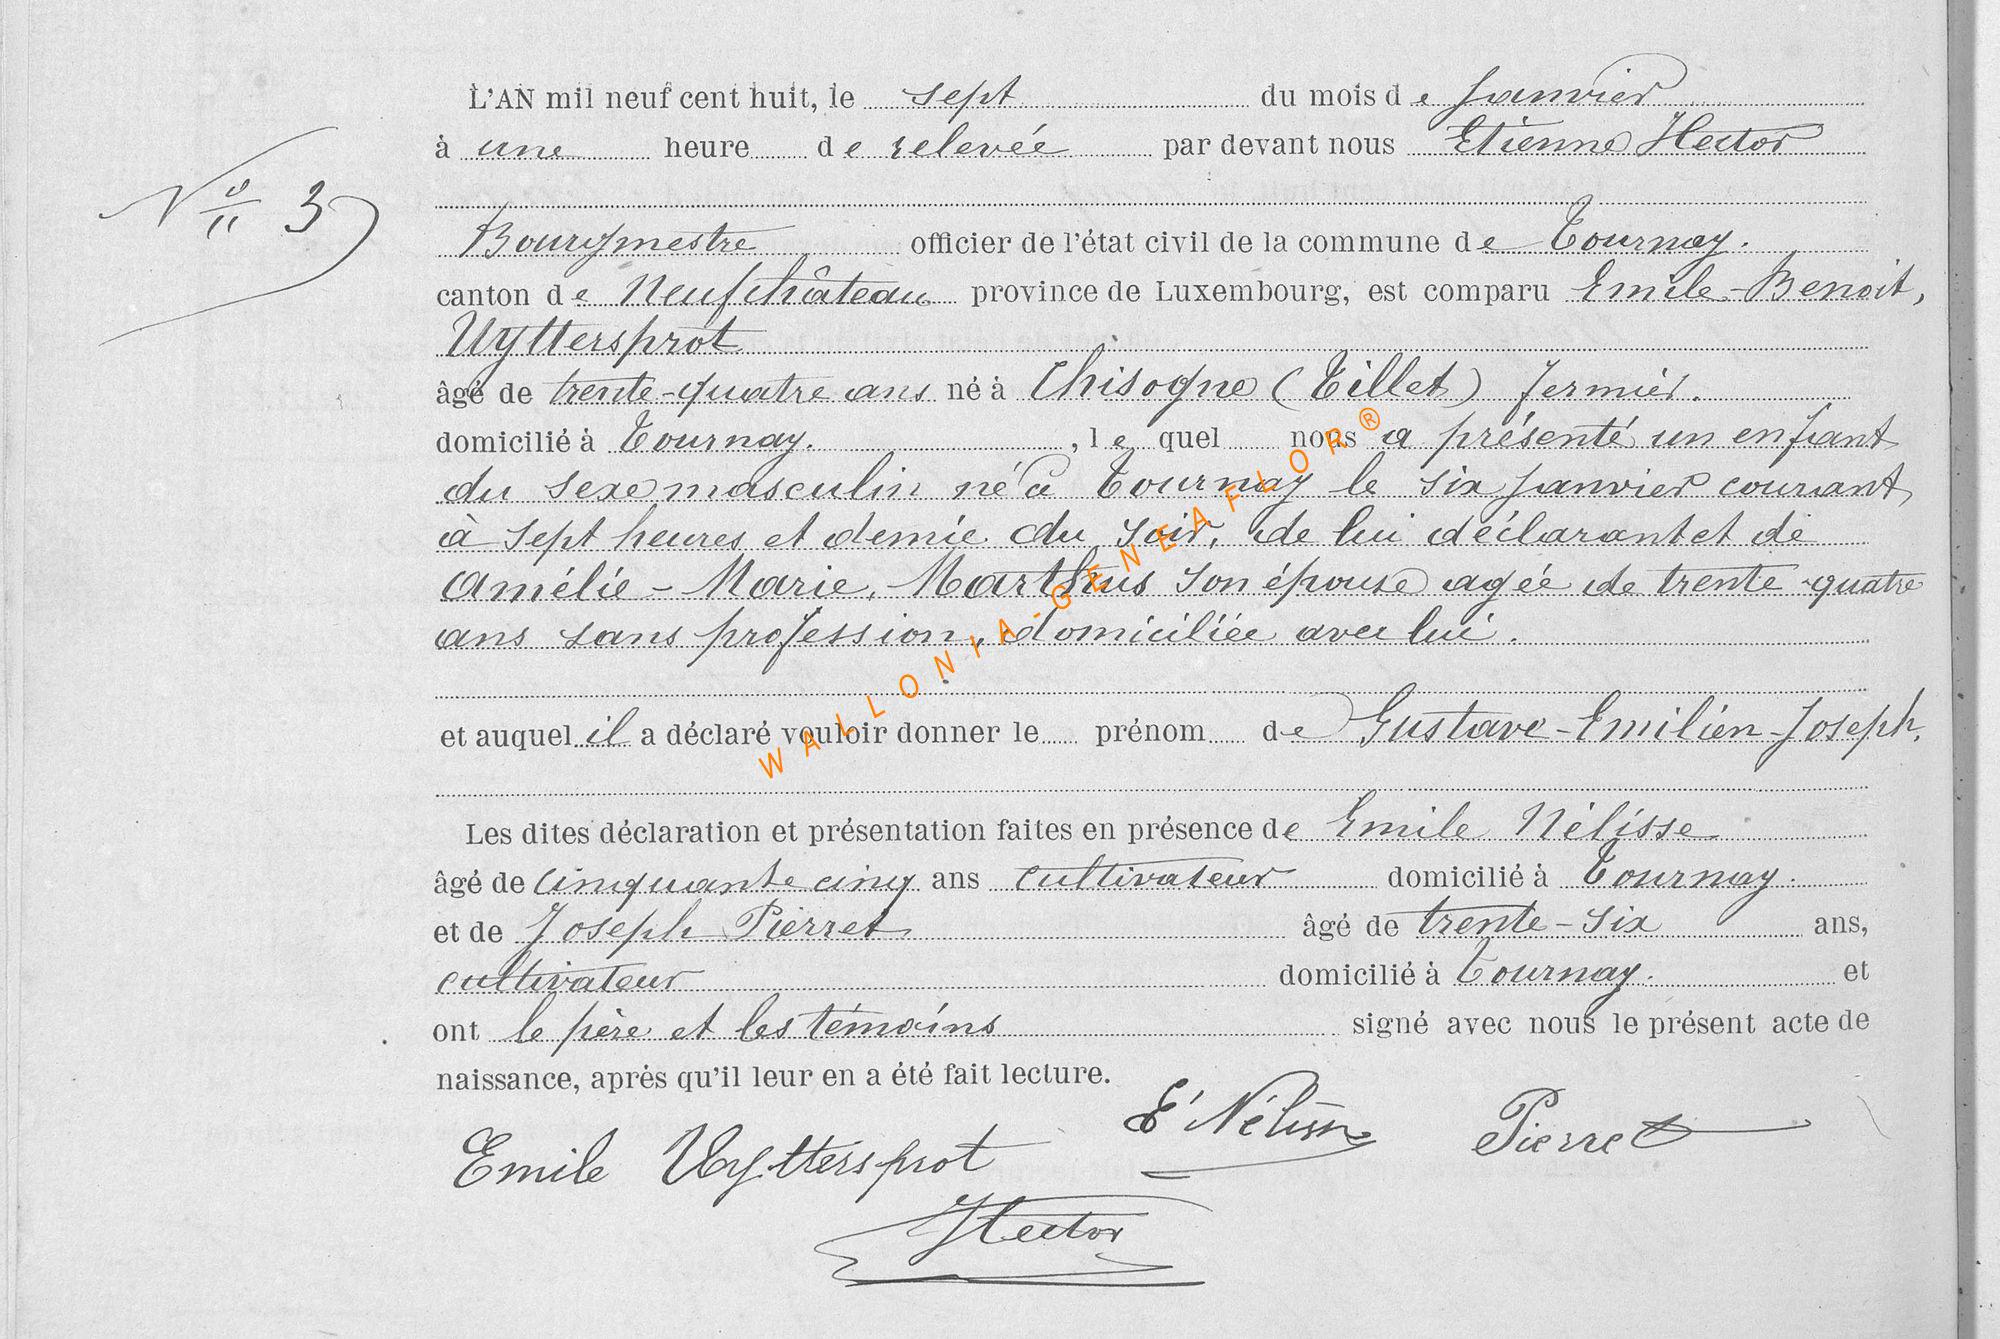 L'AN mil neuf cent huit, le sept du mois de Janvier
à une heure de relevée par devant nous Etienne Hector
N° 3
Bourgmestre officier de l'état civil de la commune de Tournay.
canton de Neufchâteau province de Luxembourg, est comparu Emile-Benoit,
Uyttersprot
âgé de trente-quatre ans né à Chisogne (Tillet) fermier.
domicilié à Tournay. , le quel nous a présenté un enfant
du sexe masculin né à Tournay le six Janvier courant
à sept heures et demie du soir, de lui déclarant et de
Amélie-Marie, Marthus son épouse agée de trente-quatre
ans sans profession, domiciliée avec lui.
et auquel il a déclaré vouloir donner le prénom de Gustave-Emilien-Joseph.
Les dites déclaration et présentation faites en présence de Emile Nélisse
âgé de cinquante cinq ans cultivateur domicilié à Tournay.
et de Joseph Pierret âgé de trente-six ans,
cultivateur domicilié à Tournay. et
ont le père et les témoins signé avec nous le présent acte de
naissance, après qu'il leur en a été fait lecture.
E Nélisse Pierret
Emile Uyttersprot
Hector
WALLONIA-GENEAFLOR®